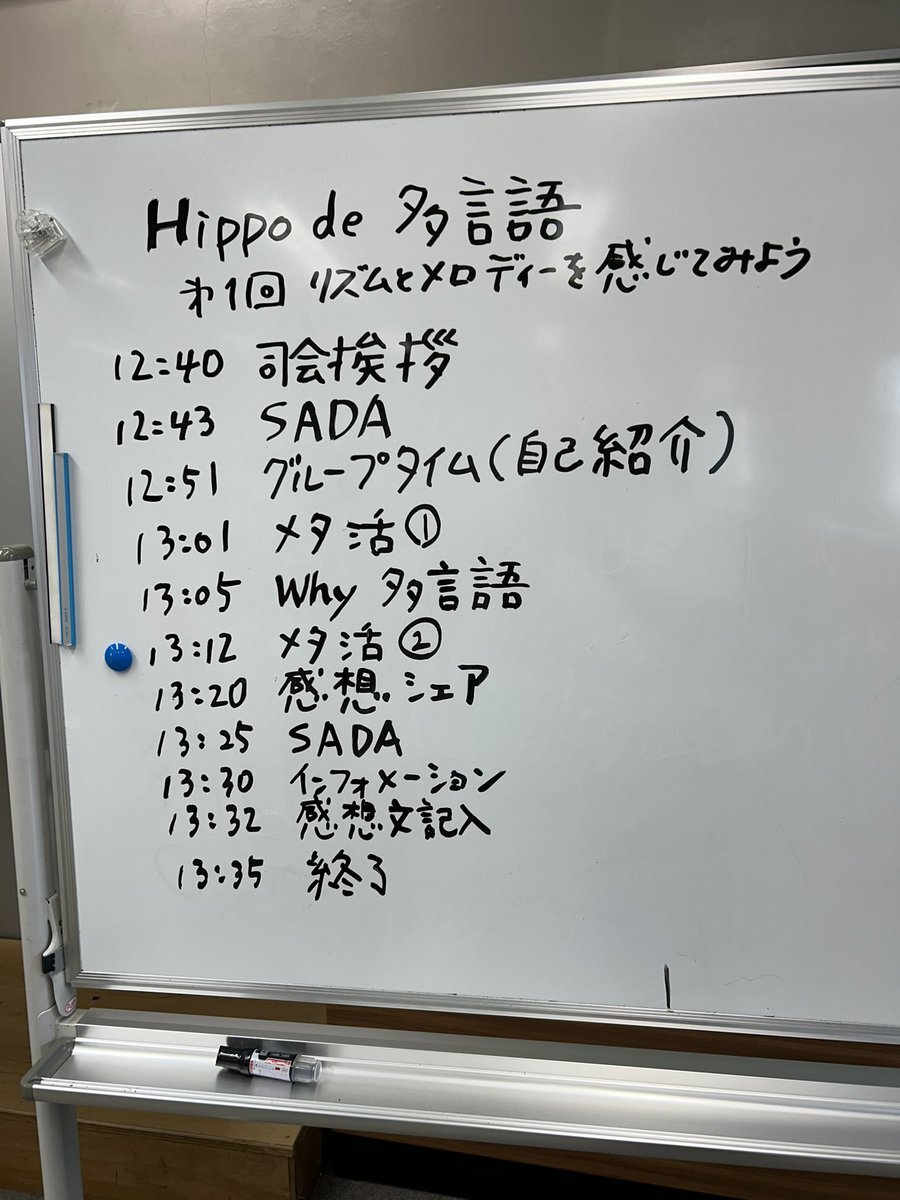 Hippo de 多言語
第1回 リズムとメロディーを感じてみよう
12:40 司会挨拶
12:43 SADA
12:51 グループタイム(自己紹介)
13:01 メタ活①
13:05 Why 多言語
13:12 メタ活②
13:20 感想シェア
13:25 SADA
13:30 インフォメーション
13:32 感想文記入
13:35 終了